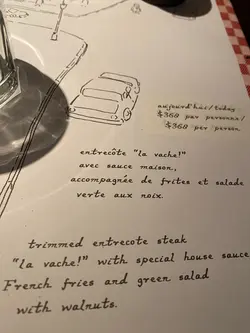 aujourd'hui/today
$368 per personne/
$368 per person.
entrecôte "la vache!"
avec sauce maison,
accompagnée de frites et salade
verte aux noix.
trimmed entrecote steak
"la vache!" with special house sauce
French fries and green salad
with walnuts.